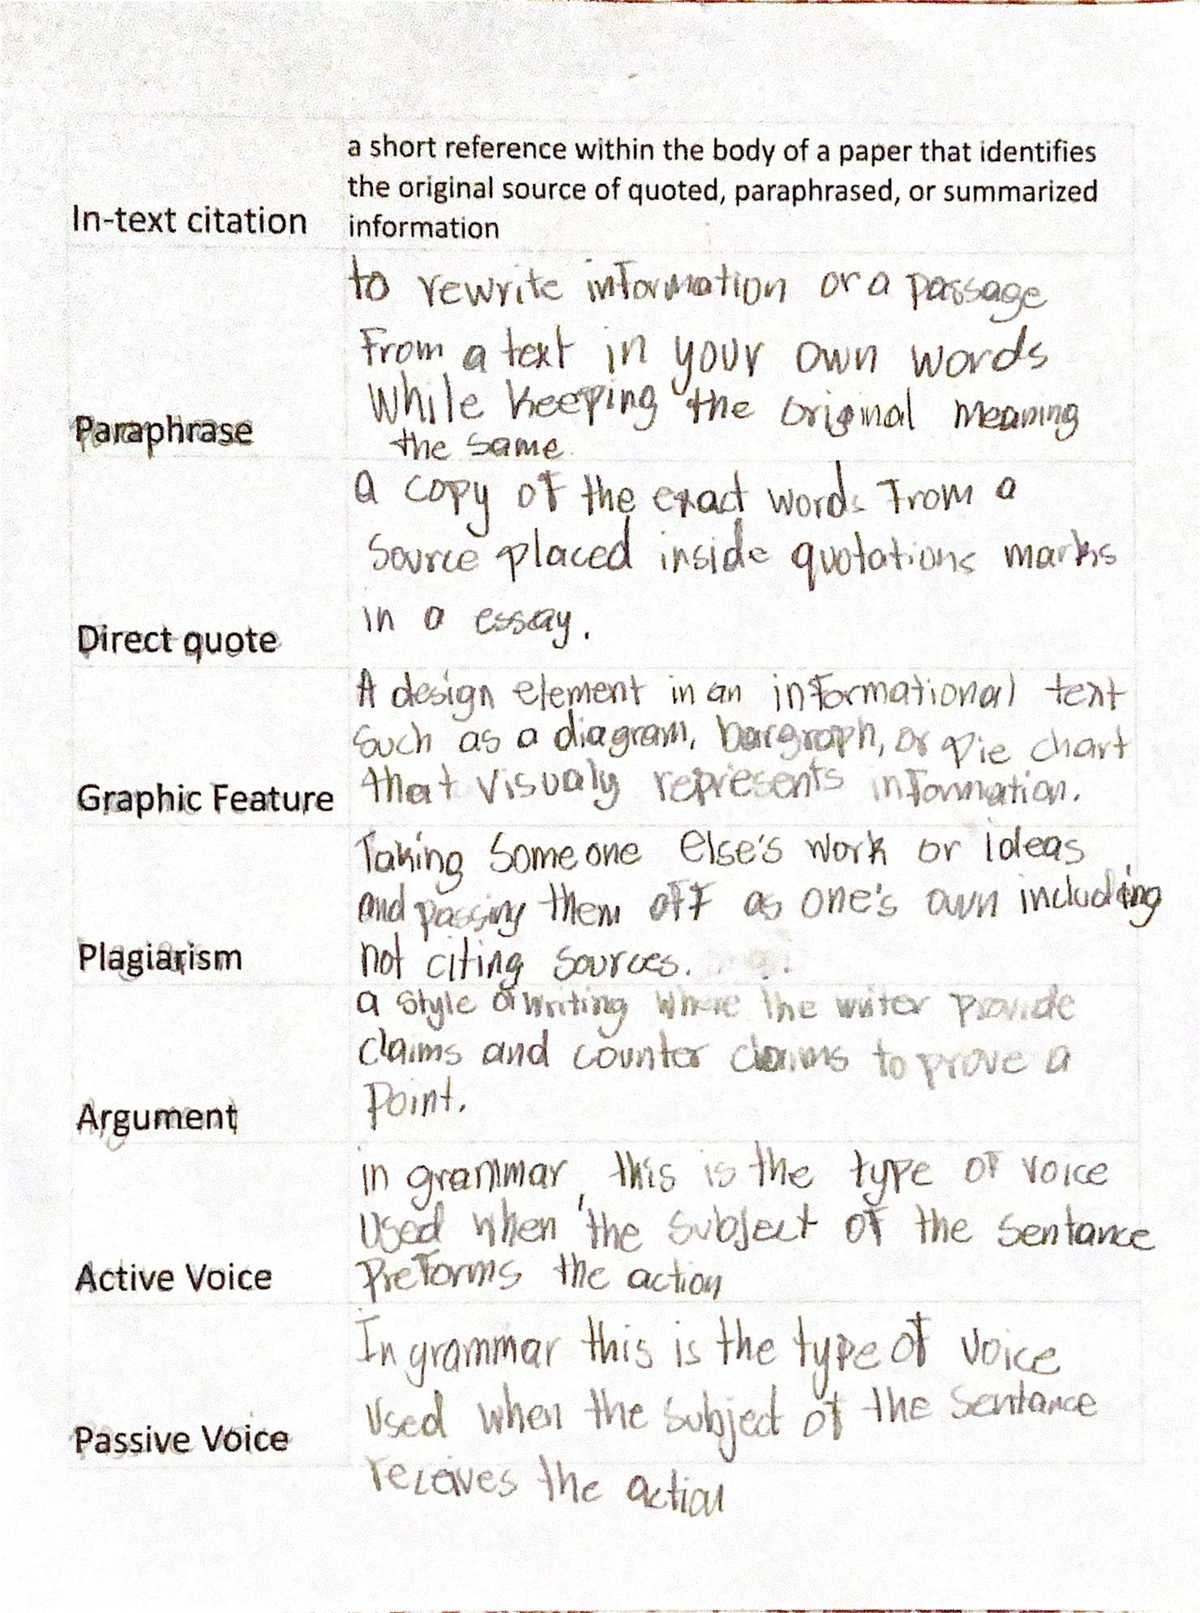 a short reference within the body of a paper that identifies
the original source of quoted, paraphrased, or summarized
In-text citation information
to rewrite information or a passage
From a text in your own words
While keeping the original meaning
Paraphrase the same
a copy of the exact words From a
Source placed inside quotations marks
in a essay.
Direct quote
A design element in an informational text
Such as a diagram, bargraph, or pie chart
Graphic Feature that visualy represents information.
Taking Someone else's work or ideas
and passing them off as one's own including
Plagiarism not citing sources.
a style of writing where the writer provide
claims and counter claims to prove a
Argument Point.
in grammar, this is the type of voice
Used when the subject of the sentance
Active Voice Preforms the action
In grammar this is the type of voice
Used when the subject of the sentance
Passive Voice
receives the action